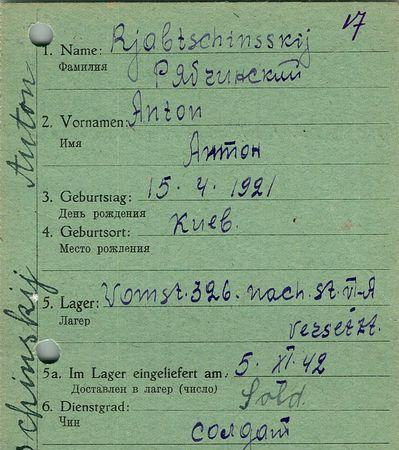 17
1. Name: Rjabtschinsskij
Фамилия Рябчинский
2. Vornamen: Anton
Имя
Антон
3. Geburtstag: 15. 4. 1921
День рождения
4. Geburtsort: Киев.
Место рождения
5. Lager: Vomst. 326. nach. St. VI-A
Лагер versetzt.
5a. Im Lager eingeliefert am: 5. XI. 42
Доставлен в лагер (число)
6. Dienstgrad: Sold.
Чин солдат
chinskij Anton